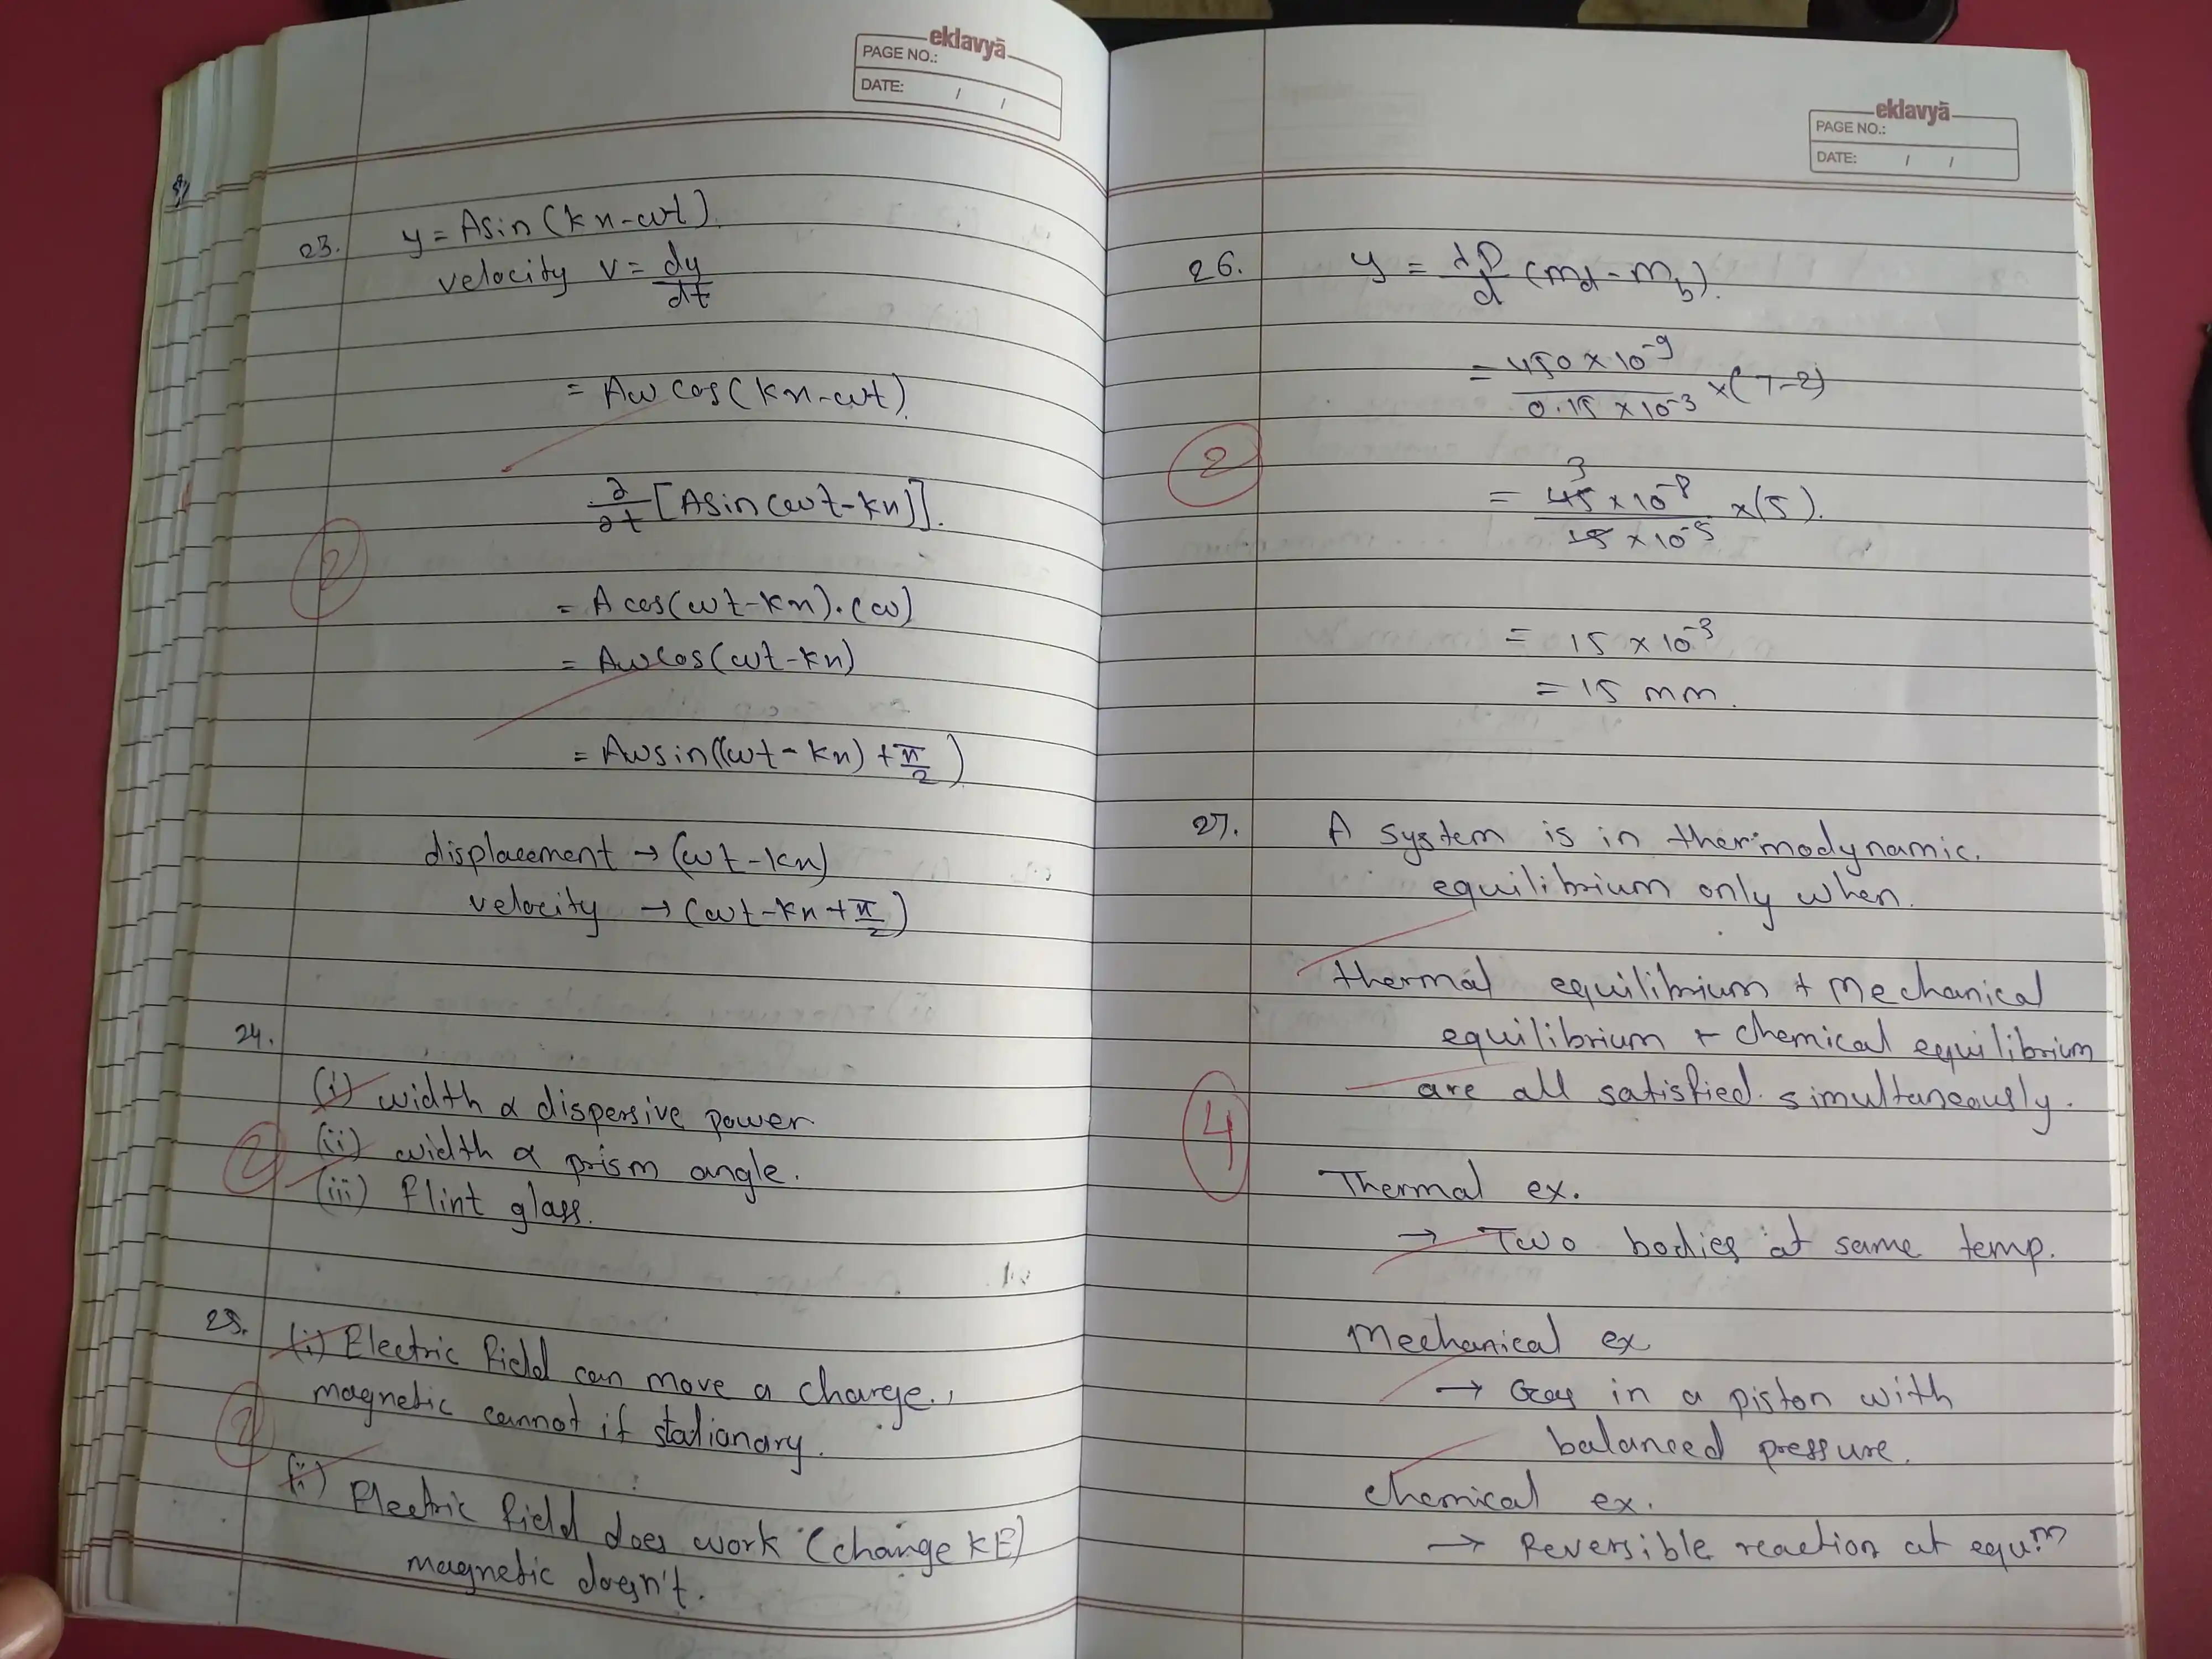 eklavyā
PAGE NO.:
DATE: / /
23. y = Asin(kx-ωt).
velocity v = dy/dt
= Aω cos(kx-ωt).
∂/∂t [Asin(ωt-kx)].
2
= A cos(ωt-kx).(ω)
= Aωcos(ωt-kx)
= Aωsin((ωt-kx) + π/2)
displacement → (ωt-kx)
velocity → (ωt-kx+π/2)
24.
(i) width α dispersive power
(ii) width α prism angle.
2
(iii) flint glass.
25. (i) Electric field can move a charge.,
magnetic cannot if stationary.
2
(ii) Electric field does work (change KE)
magnetic doesn't.
eklavyā
PAGE NO.:
DATE: / /
26. y = λD/d (md - mb).
= 450 × 10⁻⁹ / 0.15 × 10⁻³ × (7-2)
2
3
= 45 × 10⁻⁸ / 15 × 10⁻⁵ × (5).
= 15 × 10⁻³
= 15 mm.
27. A system is in thermodynamic.
equilibrium only when.
thermal equilibrium + Mechanical
equilibrium + chemical equilibrium
are all satisfied. simultaneously.
4
Thermal ex.
→ Two bodies at same temp.
Mechanical ex.
→ Gas in a piston with
balanced pressure.
Chemical ex.
→ Reversible reaction at equ.m